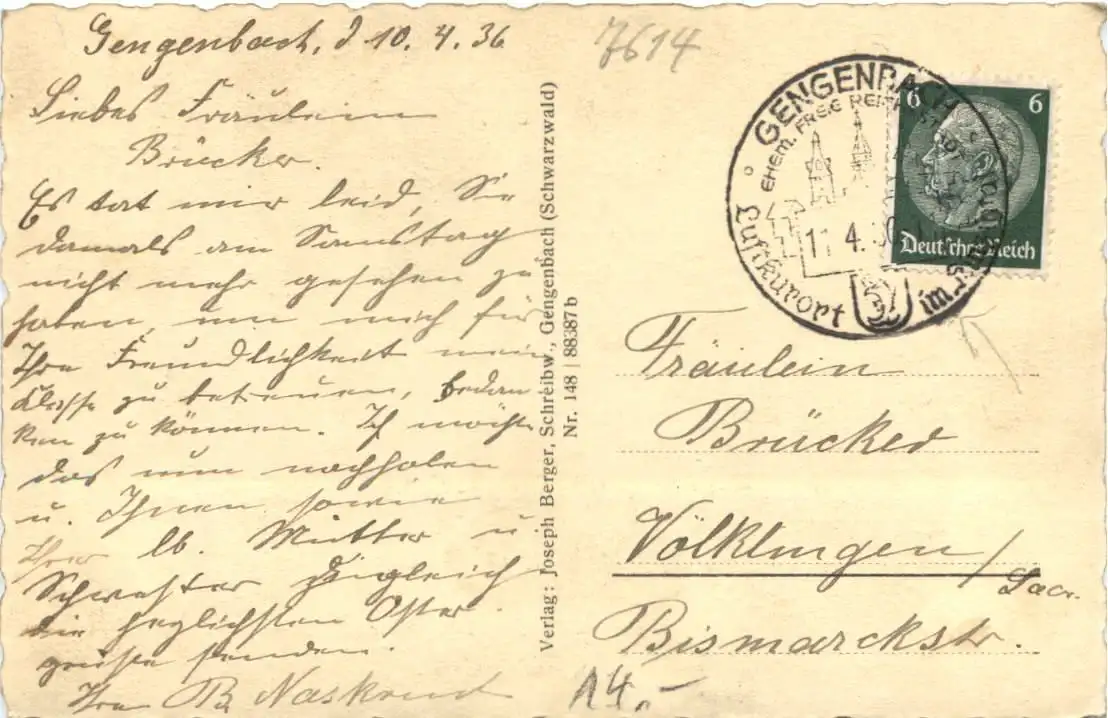 Gengenbach, d 10. 4. 36
Liebes Fräulein
Brücker.
Es tat mir leid, Sie
damals am Samstag
nicht mehr gesehen zu
haben, um mich für
Ihre Freundlichkeit mein
Klasse zu betreuen, bedan
ken zu können. Ich möchte
das nun nachholen
u. Ihnen sowie
Ihrer lb. Mutter u.
Schwester zugleich
die herzlichsten Oster
grüße senden.
Ihre B.
Verlag: Joseph Berger, Schreibw., Gengenbach (Schwarzwald)
Nr. 148 | 88387 b
7614
GENGENBACH
EHEM. FREIE REICHSSTADT
Luftkurort im
11. 4.
6 6
Deutsches Reich
Fräulein
Brücker
Völklingen /
Saar.
Bismarckstr.
14.-